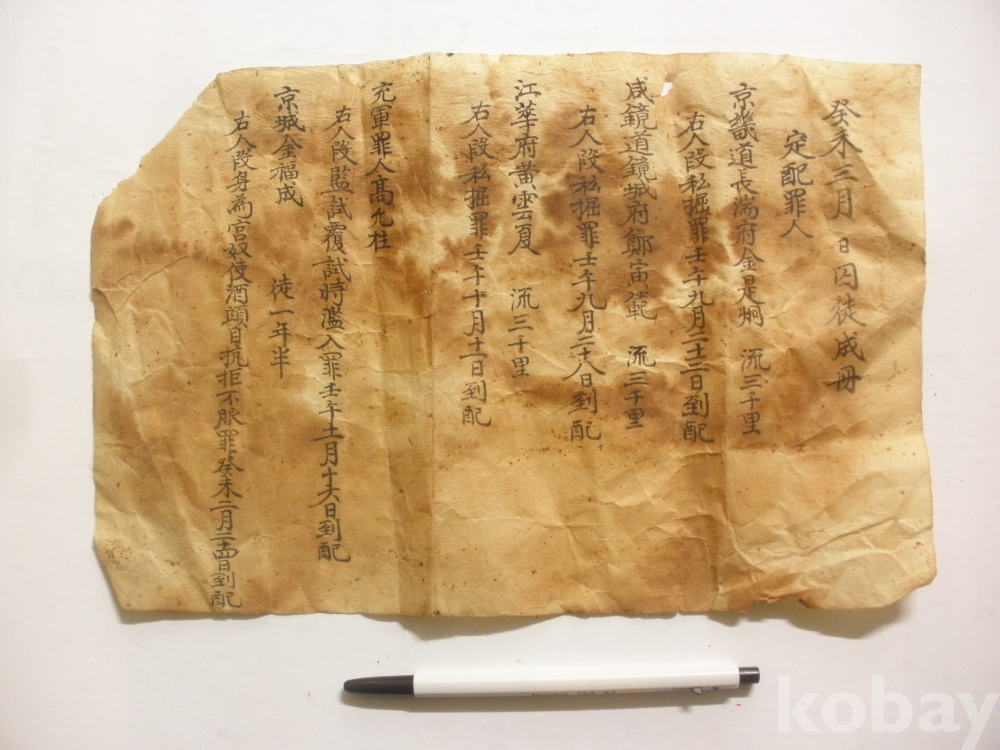 癸未三月 日囚徒成冊
定配罪人
京畿道長湍府金是炯 流三千里
右人段私掘罪壬午九月二十三日到配
咸鏡道鏡城府鄭寅範 流三千里
右人段私掘罪壬午九月二十八日到配
江華府黄雲夏 流三千里
右人段私掘罪壬午十月十一日到配
充軍罪人高允柱
右人段監試覆試時濫入罪壬午十一月十六日到配
京城金福成 徒一年半
右人段身為官奴使酒頭目抗拒不服罪癸未二月二十四日到配
kobay